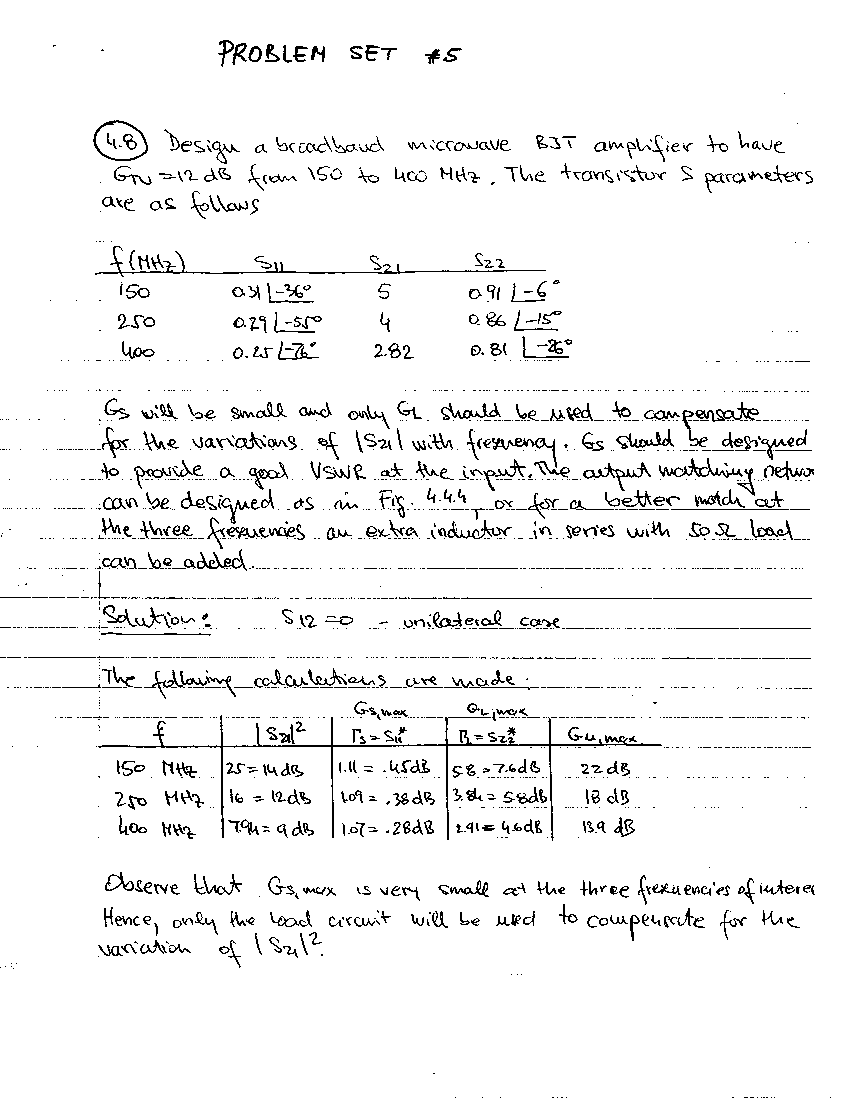 PROBLEM SET #5
4.8 Design a broadband microwave BJT amplifier to have
GTU = 12 dB from 150 to 400 MHz. The transistor S parameters
are as follows
f(MHz) S11 S21 S22
150 0.31∠-36° 5 0.91∠-6°
250 0.29∠-55° 4 0.86∠-15°
400 0.25∠-76° 2.82 0.81∠-26°
Gs will be small and only GL should be used to compensate
for the variations of |S21| with frequency. Gs should be designed
to provide a good VSWR at the input. The output matching networ
can be designed as in Fig. 4.4.4, or for a better match at
the three frequencies an extra inductor in series with 50Ω load
can be added.
Solution: S12 = 0 - unilateral case
The following calculations are made:
Gs,max GL,max
f |S21|² Γs = S11* ΓL = S22* Gu,max
150 MHz 25 = 14 dB 1.11 = .45 dB 5.8 = 7.6 dB 22 dB
250 MHz 16 = 12 dB 1.09 = .38 dB 3.84 = 5.8 dB 18 dB
400 MHz 7.94 = 9 dB 1.07 = .28 dB 2.91 = 4.6 dB 13.9 dB
Observe that Gs,max is very small at the three frequencies of interes
Hence, only the load circuit will be used to compensate for the
variation of |S21|².